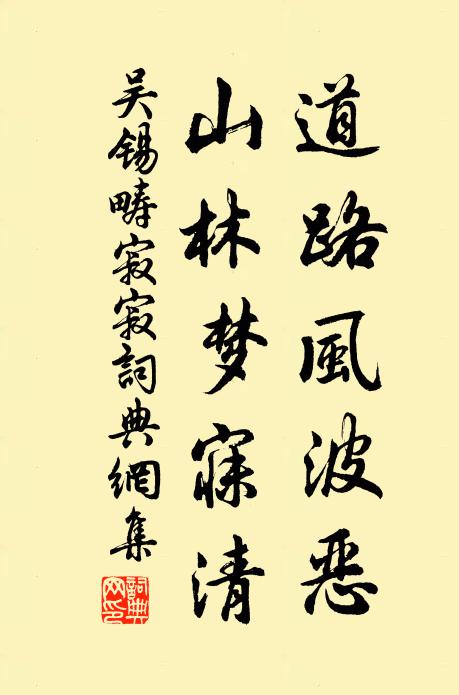 道路風波恶
山林梦寐清
吴锡畴寂寂詞典網集
詞典网印